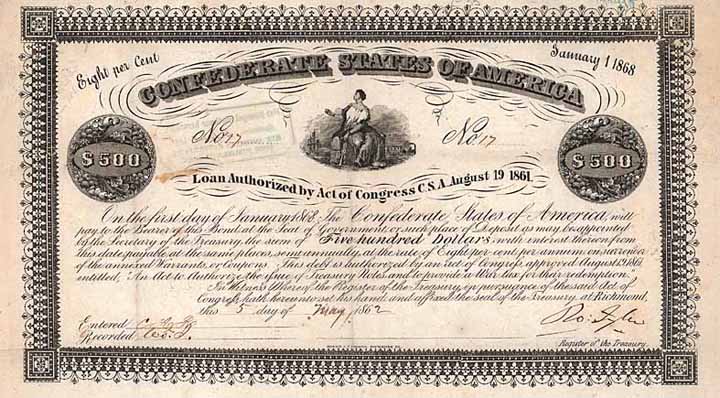 Eight per Cent
January 1 1868
CONFEDERATE STATES OF AMERICA
No. 17
No. 17
$500
$500
Loan Authorized by Act of Congress C.S.A. August 19 1861.
On the first day of January 1868 The Confederate States of America, will
pay to the Bearer of this Bond at the Seat of Government or such place of Deposit as may be appointed
by the Secretary of the Treasury, the sum of Five hundred Dollars, with interest thereon from
this date payable at the same place, semi annually, at the rate of Eight per cent per annum, on surrender
of the annexed Warrants, or Coupons. This debt is authorized by an Act of Congress approved August 19, 1861
entitled, An Act to Authorize the issue of Treasury Notes and to provide a War tax for their redemption.
In Witness Whereof the Register of the Treasury, in pursuance of the said Act of
Congress, hath hereunto set his hand and affixed the Seal of the Treasury, at Richmond,
this 5 day of May, 1862
Entered
Recorded
Ro. Tyler
Register of the Treasury.